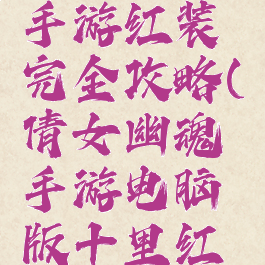 手游红装
完全攻略(
倩女幽魂
手游电脑
版十里红